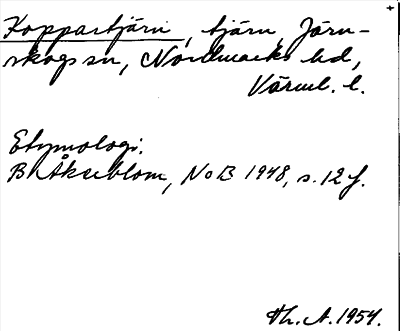 +
Koppartjärn, tjärn, Järn-
skogs sn, Nordmarks hd,
Värml. l.
Etymologi.
B Åkerblom, NoB 1948, s. 12 f.
Th. A. 1954.